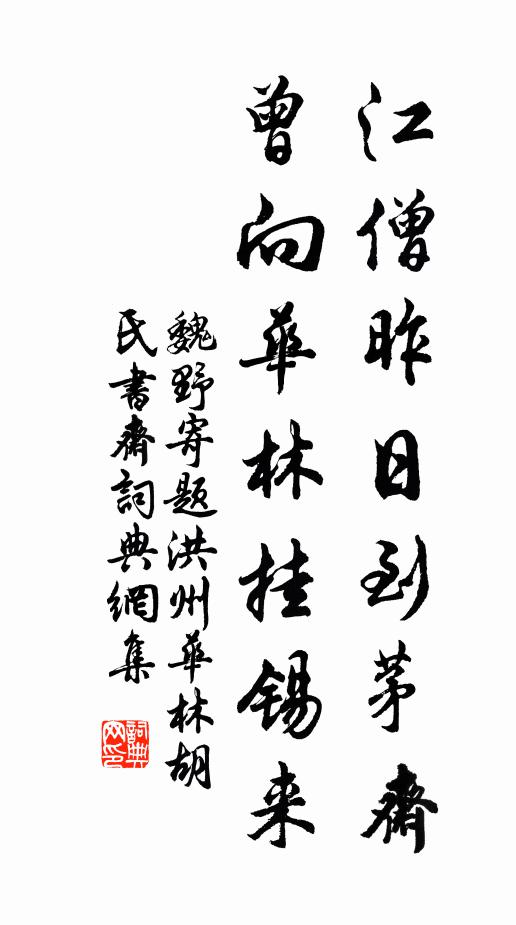 江僧昨日到茅齋
曾向華林挂錫来
魏野寄題洪州華林胡
氏書齋詞典網集
詞典
网印